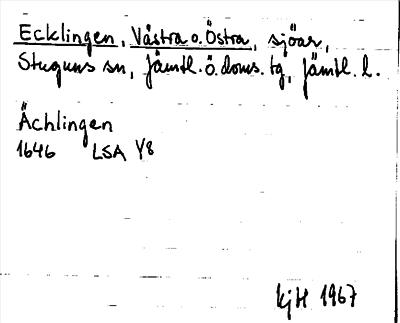 Ecklingen, Västra o. Östra, sjöar,
Stuguns sn, Jämtl. ö. doms. tg, Jämtl. l.
Ächlingen
1646 LSA Y8
kjH 1967